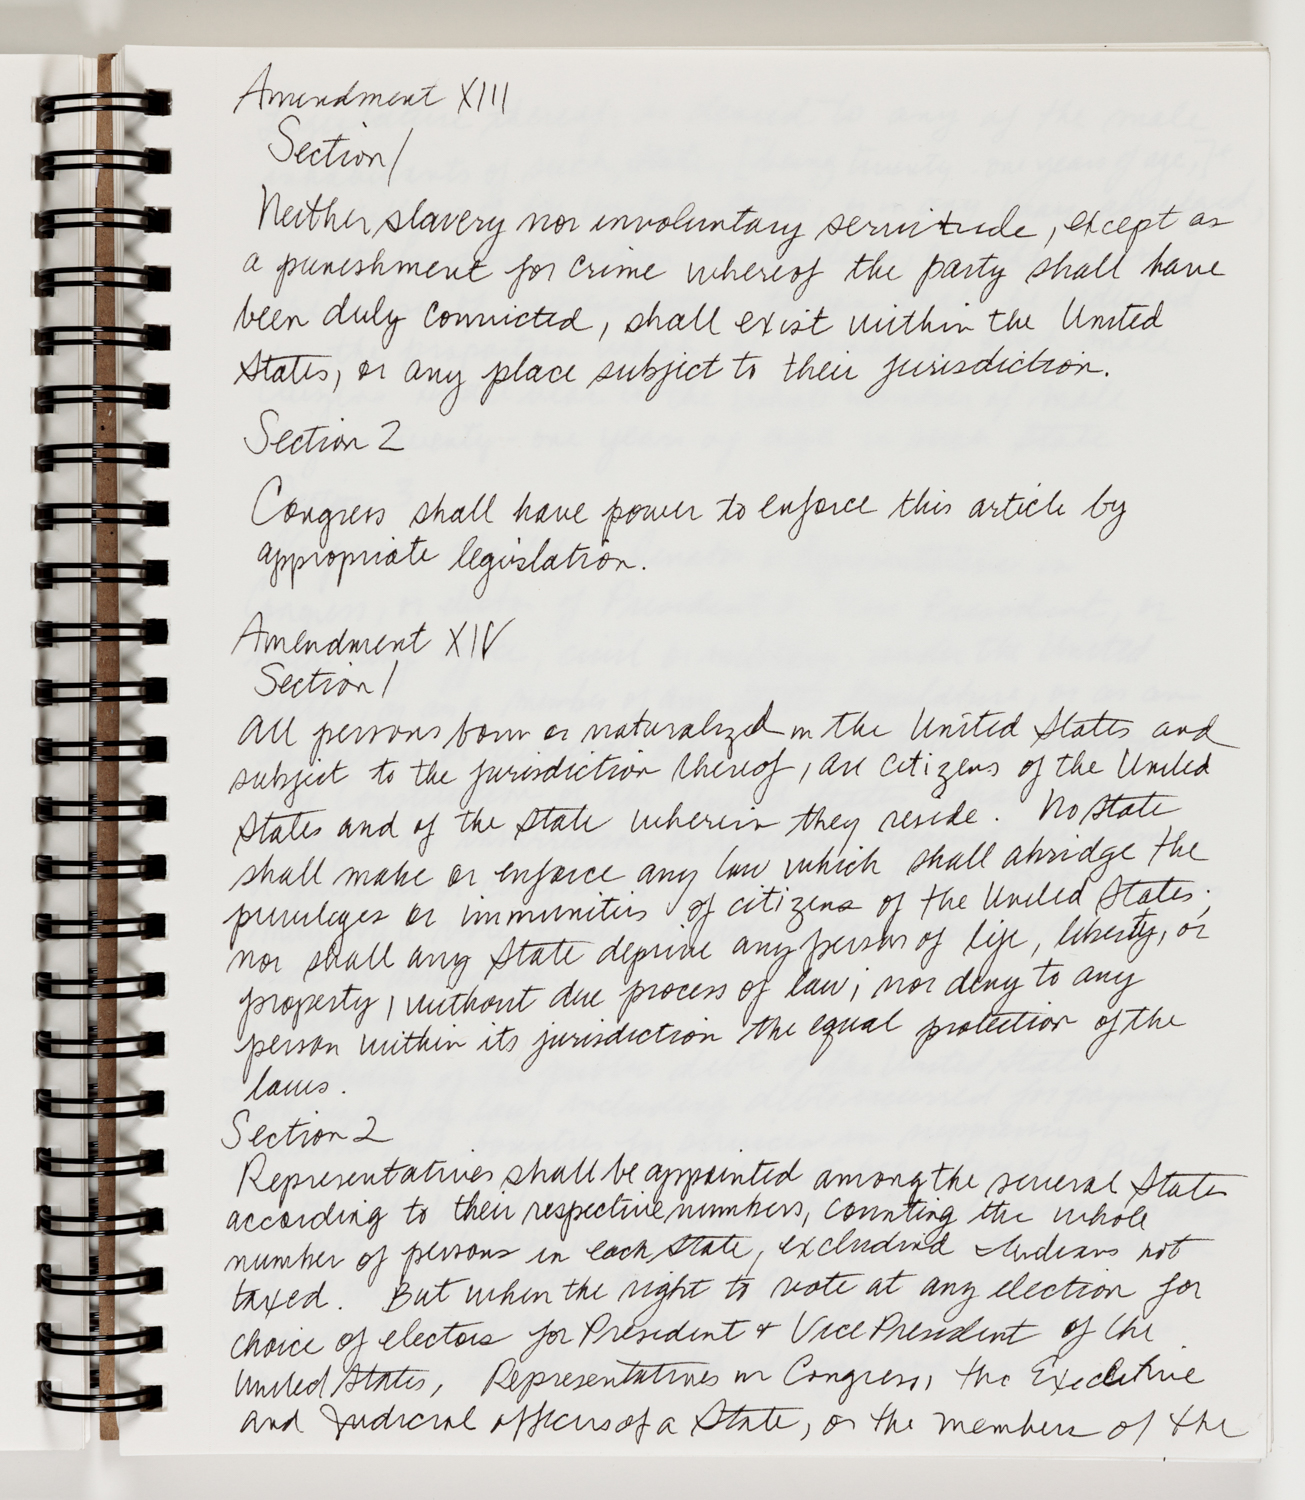 Amendment XIII
Section 1
Neither slavery nor involuntary servitude, except as
a punishment for crime whereof the party shall have
been duly convicted, shall exist within the United
States, or any place subject to their jurisdiction.
Section 2
Congress shall have power to enforce this article by
appropriate legislation.
Amendment XIV
Section 1
All persons born or naturalized in the United States and
subject to the jurisdiction thereof, are citizens of the United
States and of the State wherein they reside. No State
shall make or enforce any law which shall abridge the
privileges or immunities of citizens of the United States;
nor shall any State deprive any person of life, liberty, or
property, without due process of law; nor deny to any
person within its jurisdiction the equal protection of the
laws.
Section 2
Representatives shall be appointed among the several States
according to their respective numbers, counting the whole
number of persons in each State, excluding Indians not
taxed. But when the right to vote at any election for
choice of electors for President + Vice President of the
United States, Representatives in Congress, the Executive
and Judicial officers of a State, or the members of the